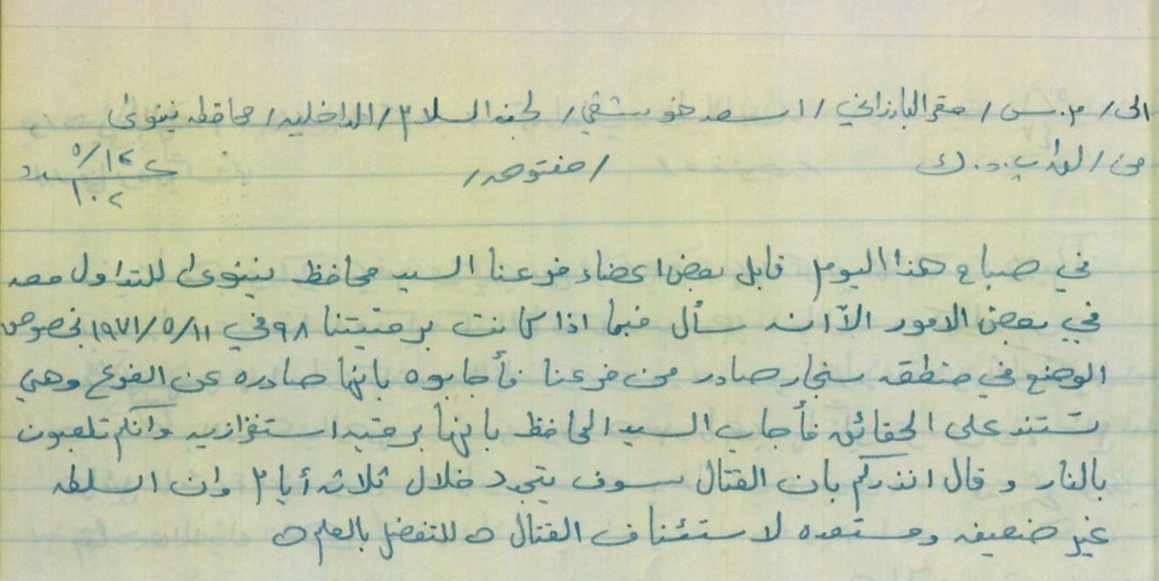 الى/ م.س/ مقر البارزاني/ اسعد خوشفي/ لجنة السلام/ الداخلية/ محافظة نينوى
من/ لواء ب.د.ك /مفتوحه/
في صباح هذا اليوم قابل بعض اعضاء فرعنا السيد محافظ نينوى للتداول معه
في بعض الامور الاّ انه سأل فيما اذا كانت برقيتنا ٩٨ في ١٩٧١/٥/١١ بخصوص
الوضع في منطقة سنجار صادر من فرعنا فأجابوه بانها صادره عن الفرع وهي
تستند على الحقائق فأجاب السيد المحافظ بانها برقيه استفزازيه وانكم تلعبون
بالنار وقال انذركم بان القتال سوف يتجدد خلال ثلاثة أيام وان السلطه
غير ضعيفه ومستعده لاستئناف القتال ٥ للتفضل بالعلم ٥